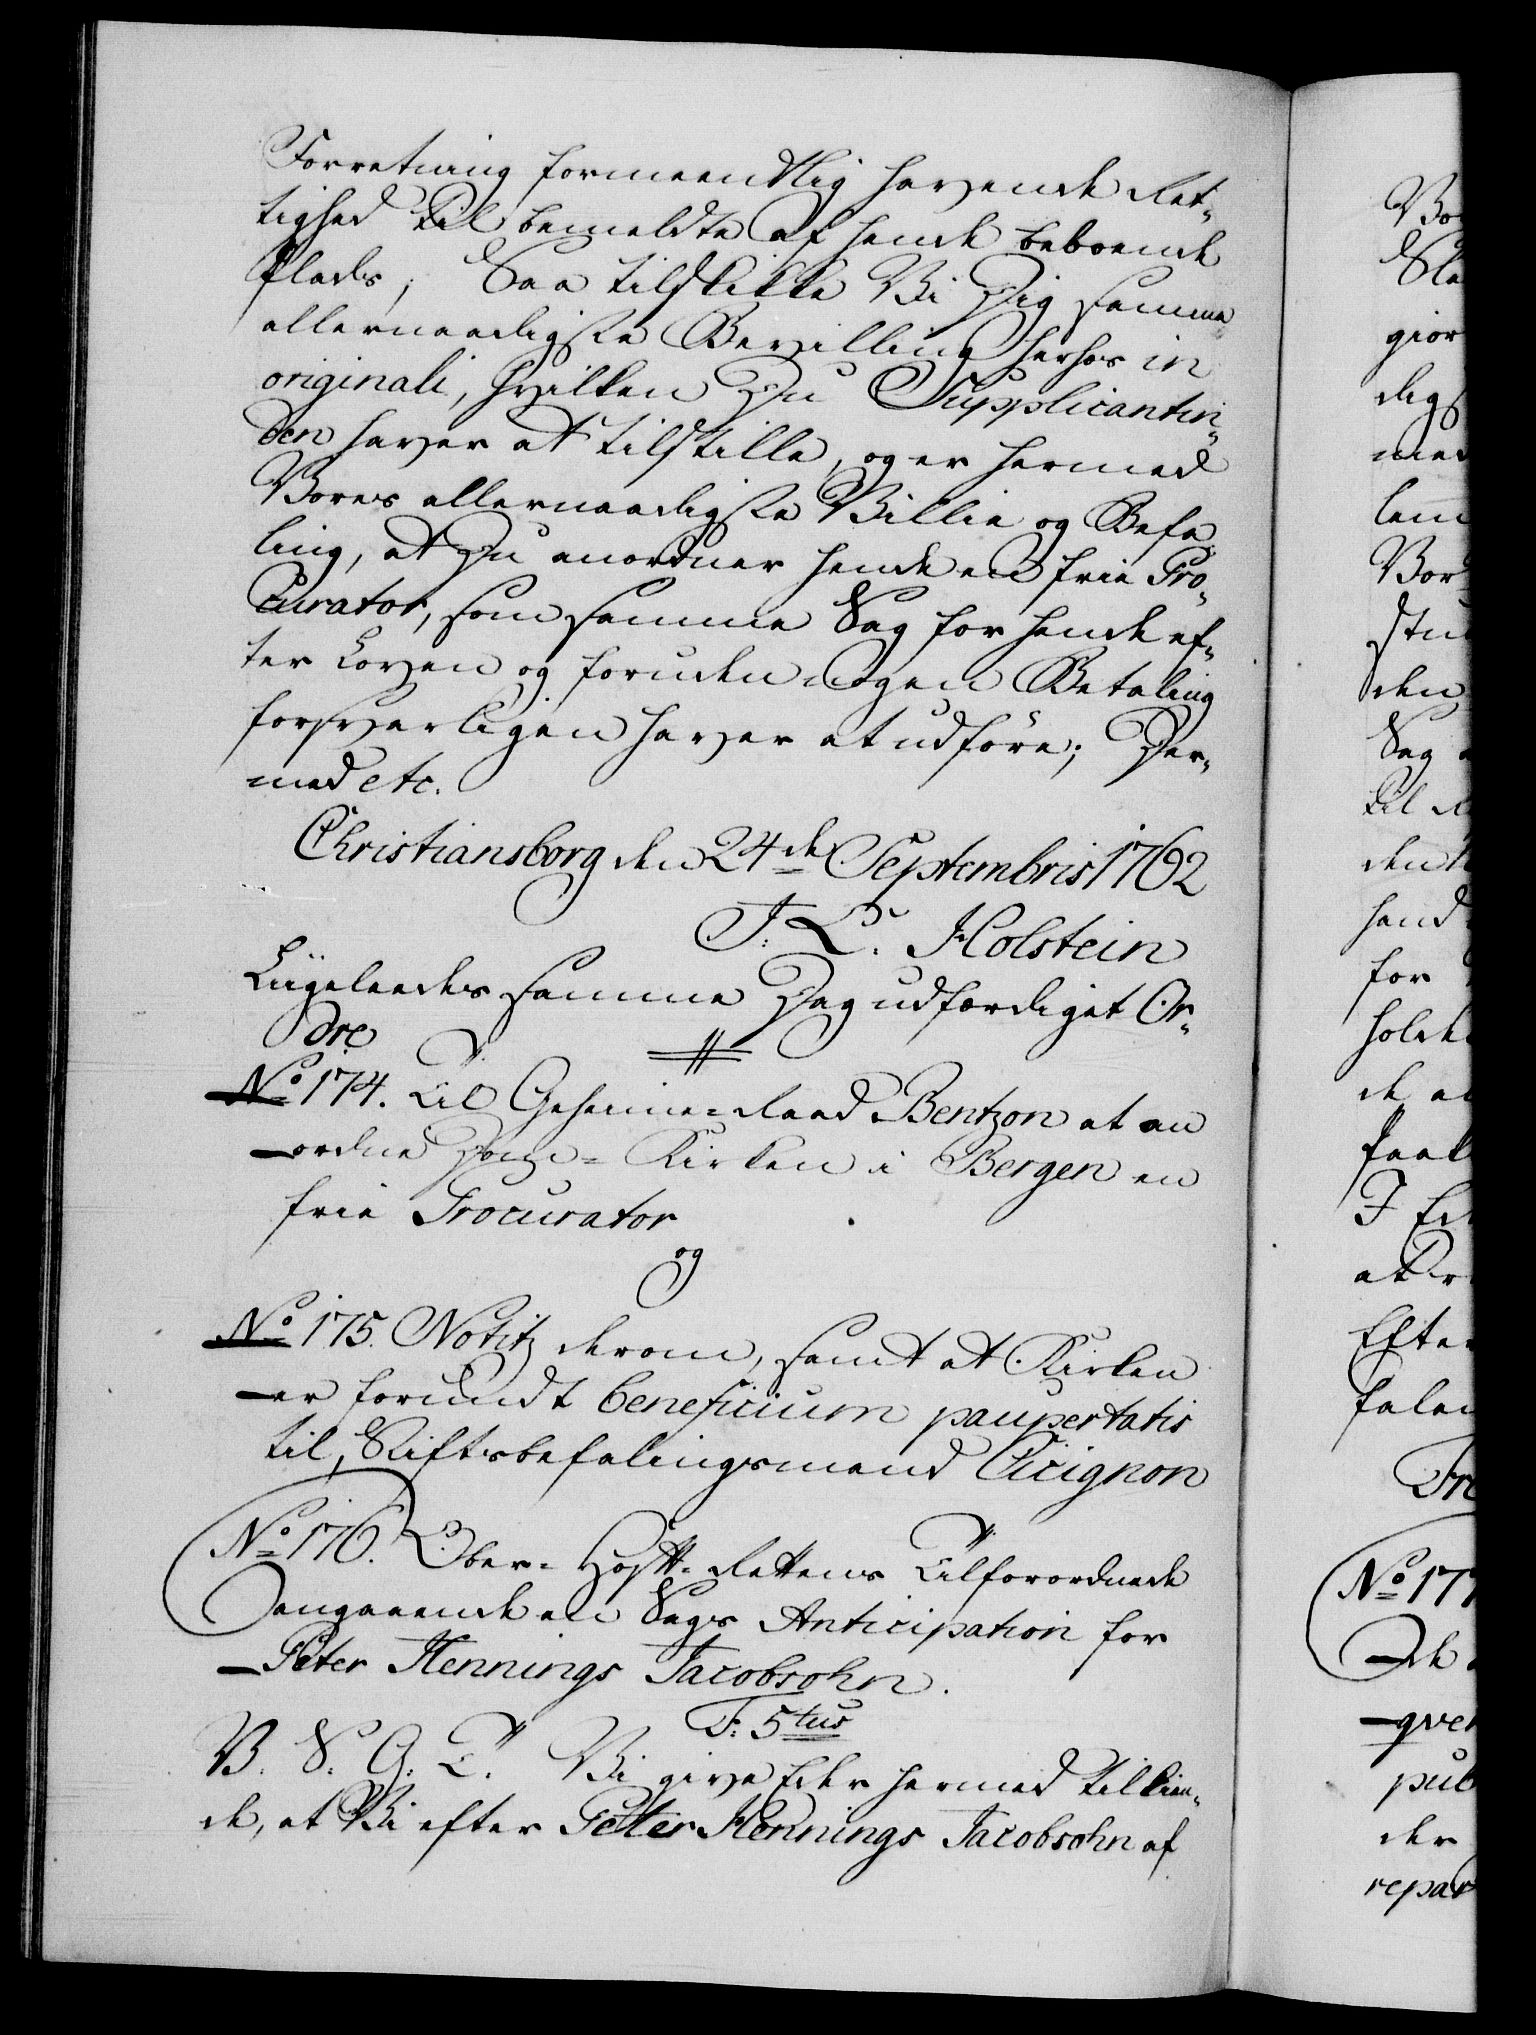 Forretning formeendtlig havende Ret-
tighed til bemeldte af hende beboende
Plads; Saa tilskikke Vi Dig samme
allernaadigste Bevilling herhos in
originali, hvilken Du Supplicantin-
den haver at tilstille, og er hermed
Vores allernaadigste Villie og Befa-
ling, at Du anordner hende en frie Pro-
curator, som samme Sag for hende ef-
ter Loven og foruden nogen Betaling
forsvarligen haver at udføre; Der-
med etc.
Christiansborg den 24de Septembris 1762
J. L. Holstein
Liigeleedes samme Dag udfærdiget Or-
dre
No 174. Til Geheime-Raad Bentzon at an
ordne Dom-Kirken i Bergen en
frie Procurator
og
No 175. Notitz derom, samt at Kirken
er forundt beneficium paupertatis
til Stiftsbefalingsmand Cicignon
No 176. Ober-Hoff-Rettens Tilforordnede
angaaende en Sags Anticipation for
Peter Hennings Jacobsohn.
F: 5tus
V. S. G. T. Vi give Eder hermed tilkien-
de, at Vi efter Petter Hennings Jacobsohn af
No 177